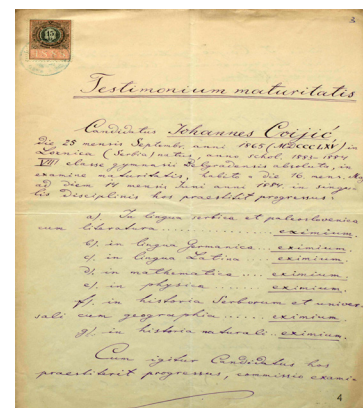 3
Testimonium maturitatis
Candidatus Johannes Cvijić,
die 25 mensis Septembr. anni 1865 (MDCCCLXV) in
Loznica (Serbia) natus, anno schol. 1883-1884
VIII classe gymnasii Belgradensis absoluta, in
examine maturitatis, habito a die 16 mens. Maj
ad diem 14 mensis Juni anni 1884. in singu-
lis disciplinis hos praestitit progressus:
a) In lingua serbica et paleoslovenica
cum literatura ........ eximium.
b) in lingua Germanica .. eximium
c) in lingua Latina ... eximium
d) in mathematica .... eximium.
e) in physica ........ eximium.
f) in historia Serborum et univer-
sali cum geographia ..... eximium.
g) in historia naturali .. eximium.
Cum igitur Candidatus hos
praestiterit progressus, commissio exami-
4